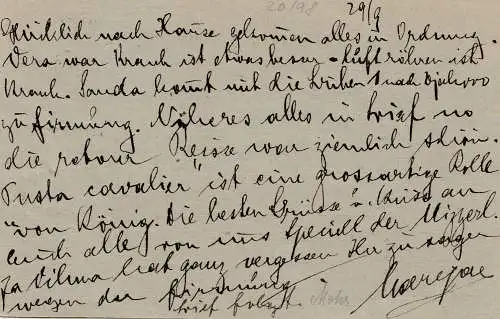 20/98 29/9
Glücklich nach Hause gekommen alles in Ordnung.
Vera war Krank ist etwas besser - luftröhren ist
Krank. Sanda kommt mit die 1 nach
zu firmung. Näheres alles in brief no
die retour Reisse war ziemlich schön.
"Pusta cavalier" ist eine grossartige Rolle
von König. Die besten Grüsse u. Küsse an
euch alle von uns speciell der Mizzerl
ja Vilma hat ganz vergessen Ihr zu sagen
wegen der Firmung
brief folgt. Mohr